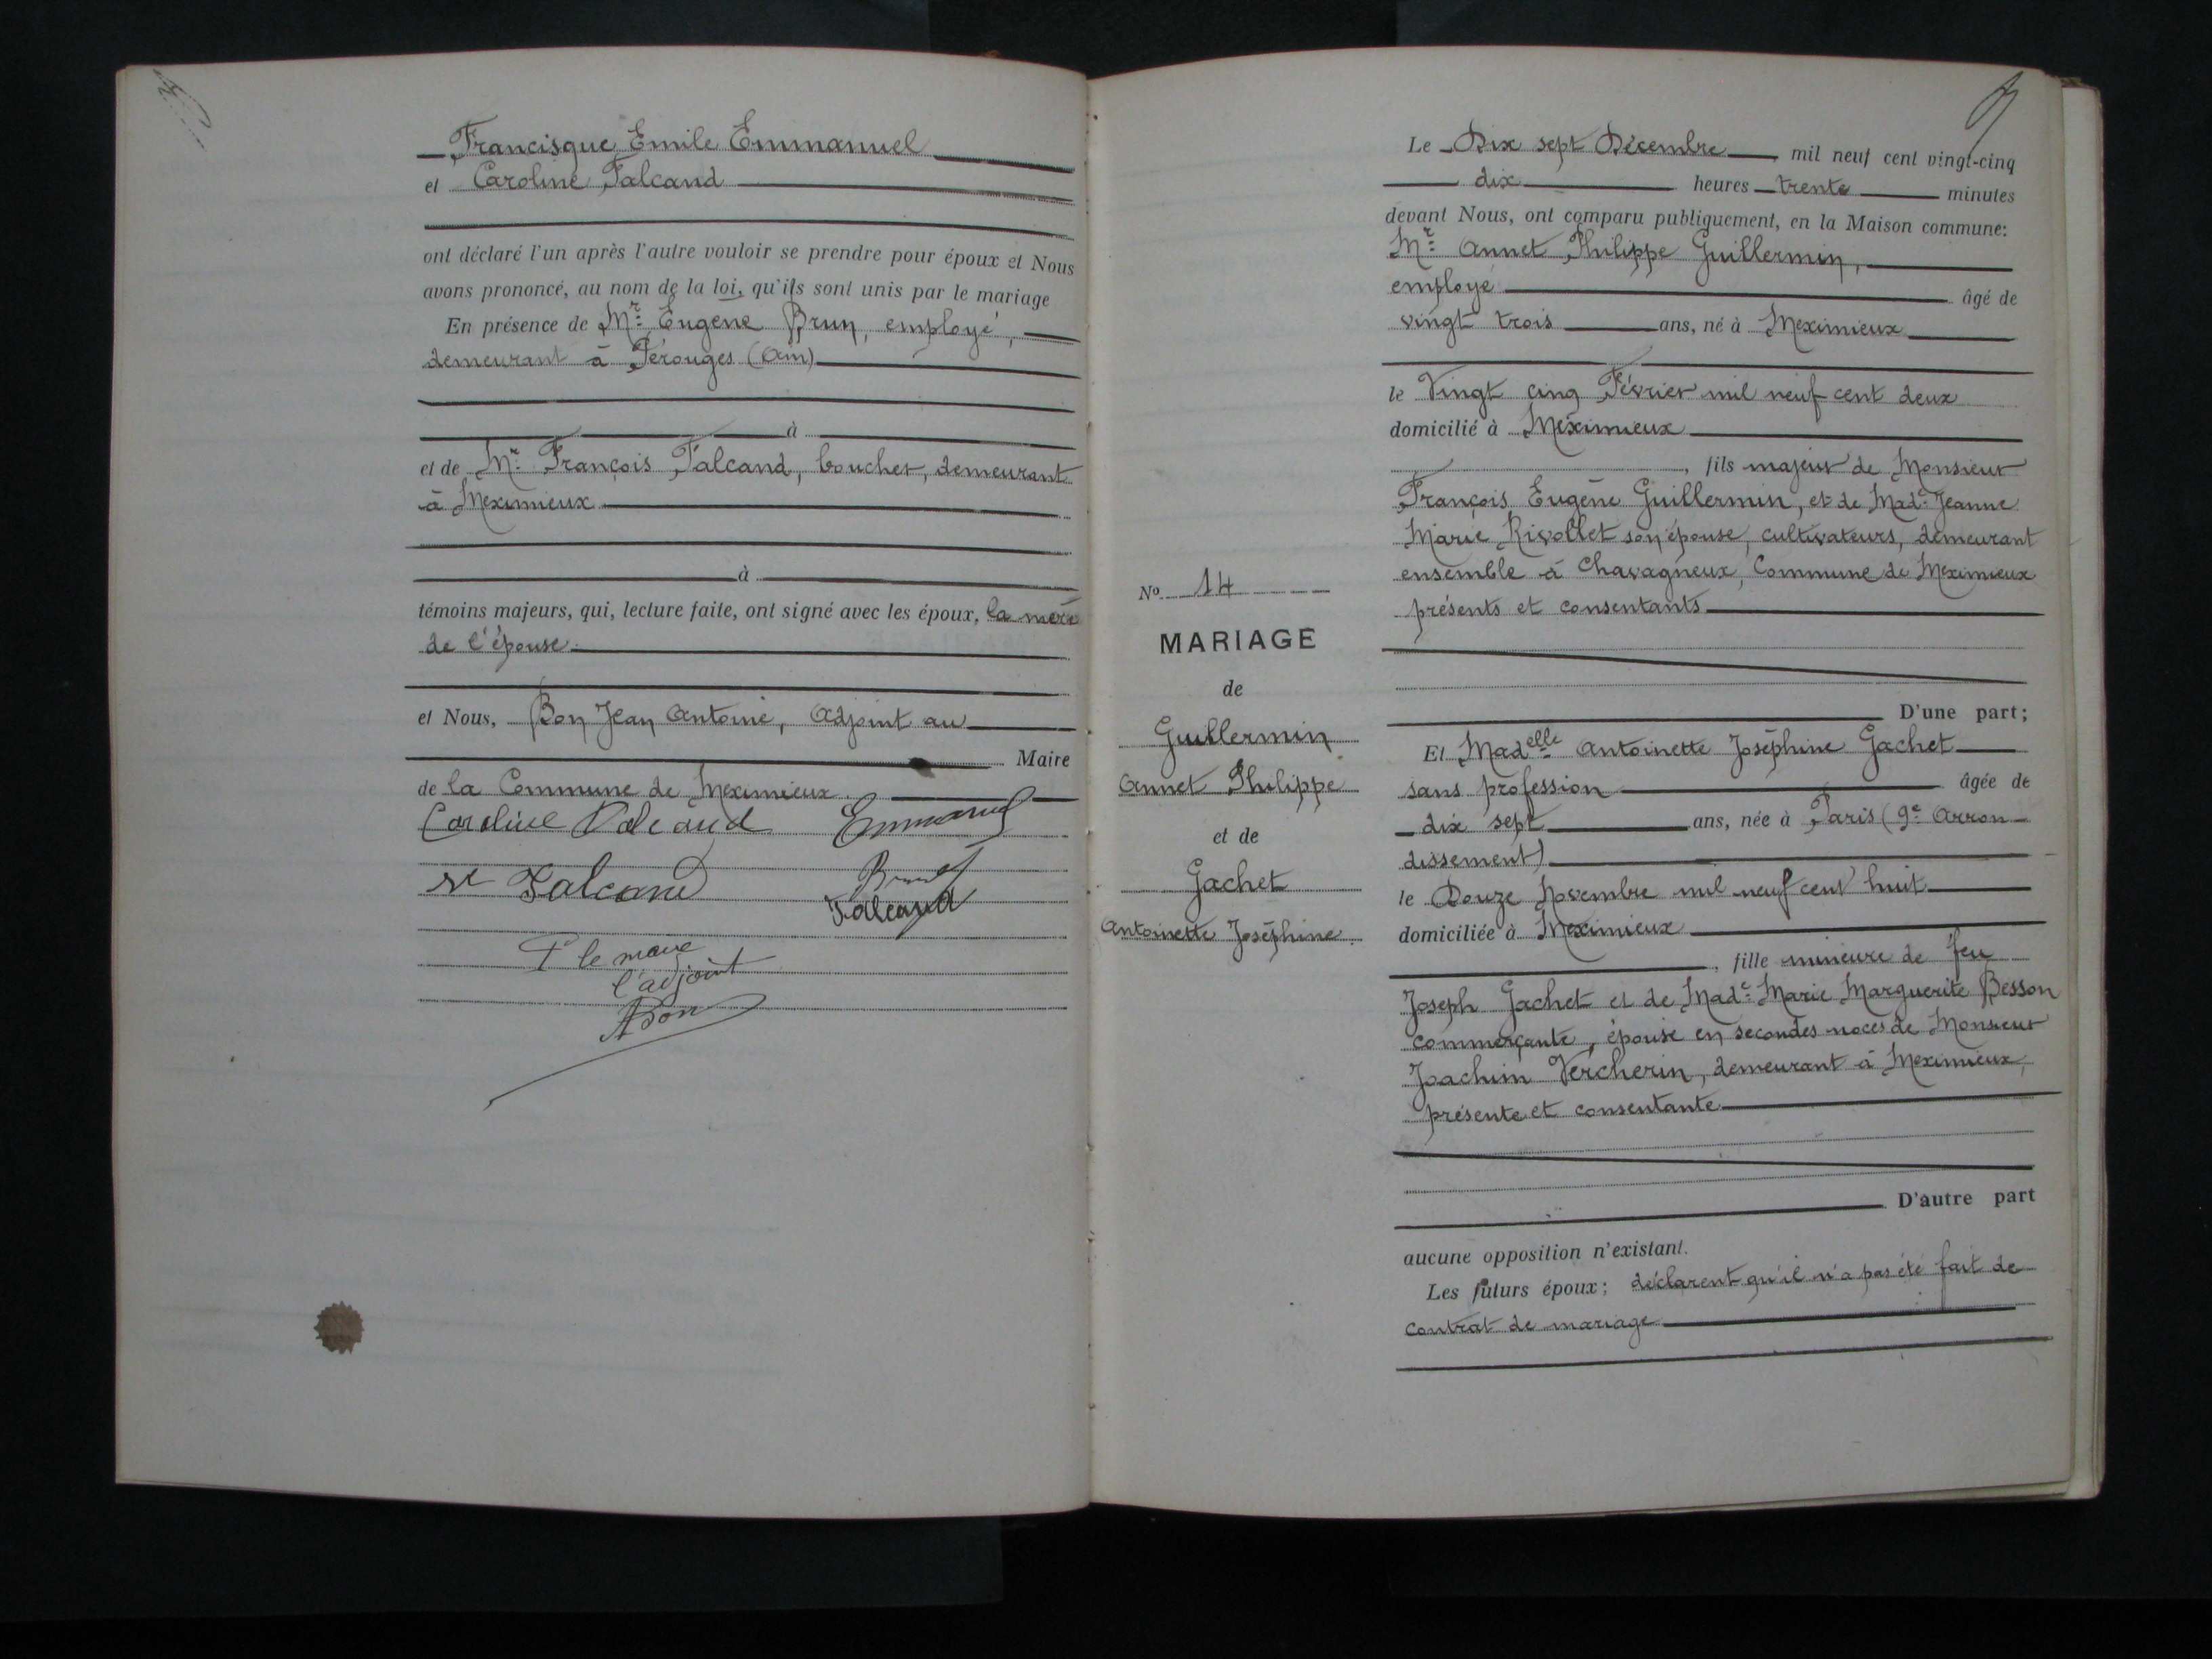 Francisque Emile Emmanuel
et Caroline Falcand
ont déclaré l'un après l'autre vouloir se prendre pour époux et Nous
avons prononcé, au nom de la loi, qu'ils sont unis par le mariage
En présence de Mr. Eugène Brun, employé,
demeurant à Pérouges (Ain)
à
et de Mr. François Falcand, boucher, demeurant
à Meximieux
à
témoins majeurs, qui, lecture faite, ont signé avec les époux, la mère
de l'épouse.
et Nous, Bon Jean Antoine, Adjoint au
Maire
de la Commune de Meximieux
Caroline Falcand Emmanuel
Falcand Brun
Falcand
P le maire
l'adjoint
Bon
Le Dix sept Décembre mil neuf cent vingt-cinq
dix heures trente minutes
devant Nous, ont comparu publiquement, en la Maison commune:
Mr. Annet Philippe Guillermin,
employé âgé de
vingt trois ans, né à Meximieux
le Vingt cinq Février mil neuf cent deux
domicilié à Meximieux
, fils majeur de Monsieur
François Eugène Guillermin, et de Made. Jeanne
Marie Rivollet son épouse, cultivateurs, demeurant
ensemble à Chavagneux, Commune de Meximieux
présents et consentants
D'une part;
Et Madelle Antoinette Joséphine Gachet
sans profession âgée de
dix sept ans, née à Paris (9e Arron-
dissement)
le Douze Novembre mil neuf cent huit
domiciliée à Meximieux
, fille mineure de feu
Joseph Gachet et de Made. Marie Marguerite Besson
commerçante, épouse en secondes noces de Monsieur
Joachim Vercherin, demeurant à Meximieux,
présente et consentante
D'autre part
aucune opposition n'existant.
Les futurs époux; déclarent qu'il n'a pas été fait de
contrat de mariage
No 14
MARIAGE
de
Guillermin
Annet Philippe
et de
Gachet
Antoinette Joséphine.